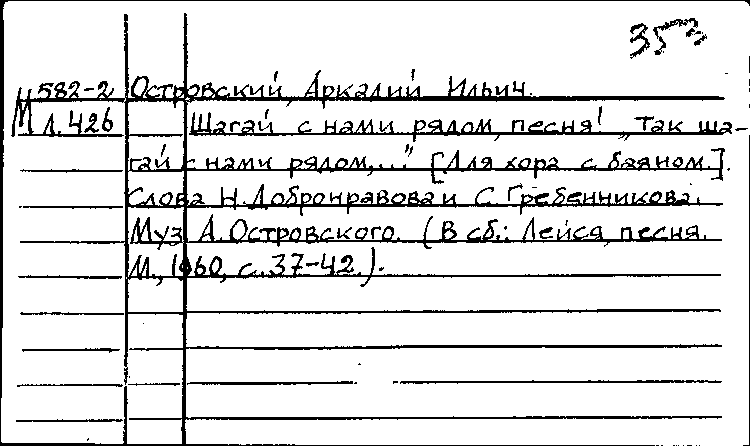 353
М 582-2 Островский, Аркадий Ильич.
Л.426 Шагай с нами рядом, песня! „Так ша-
гай с нами рядом,..." [Для хора с баяном.].
Слова Н. Добронравова и С. Гребенникова.
Муз. А. Островского. (В сб.: Лейся, песня.
М., 1960, с. 37-42.).